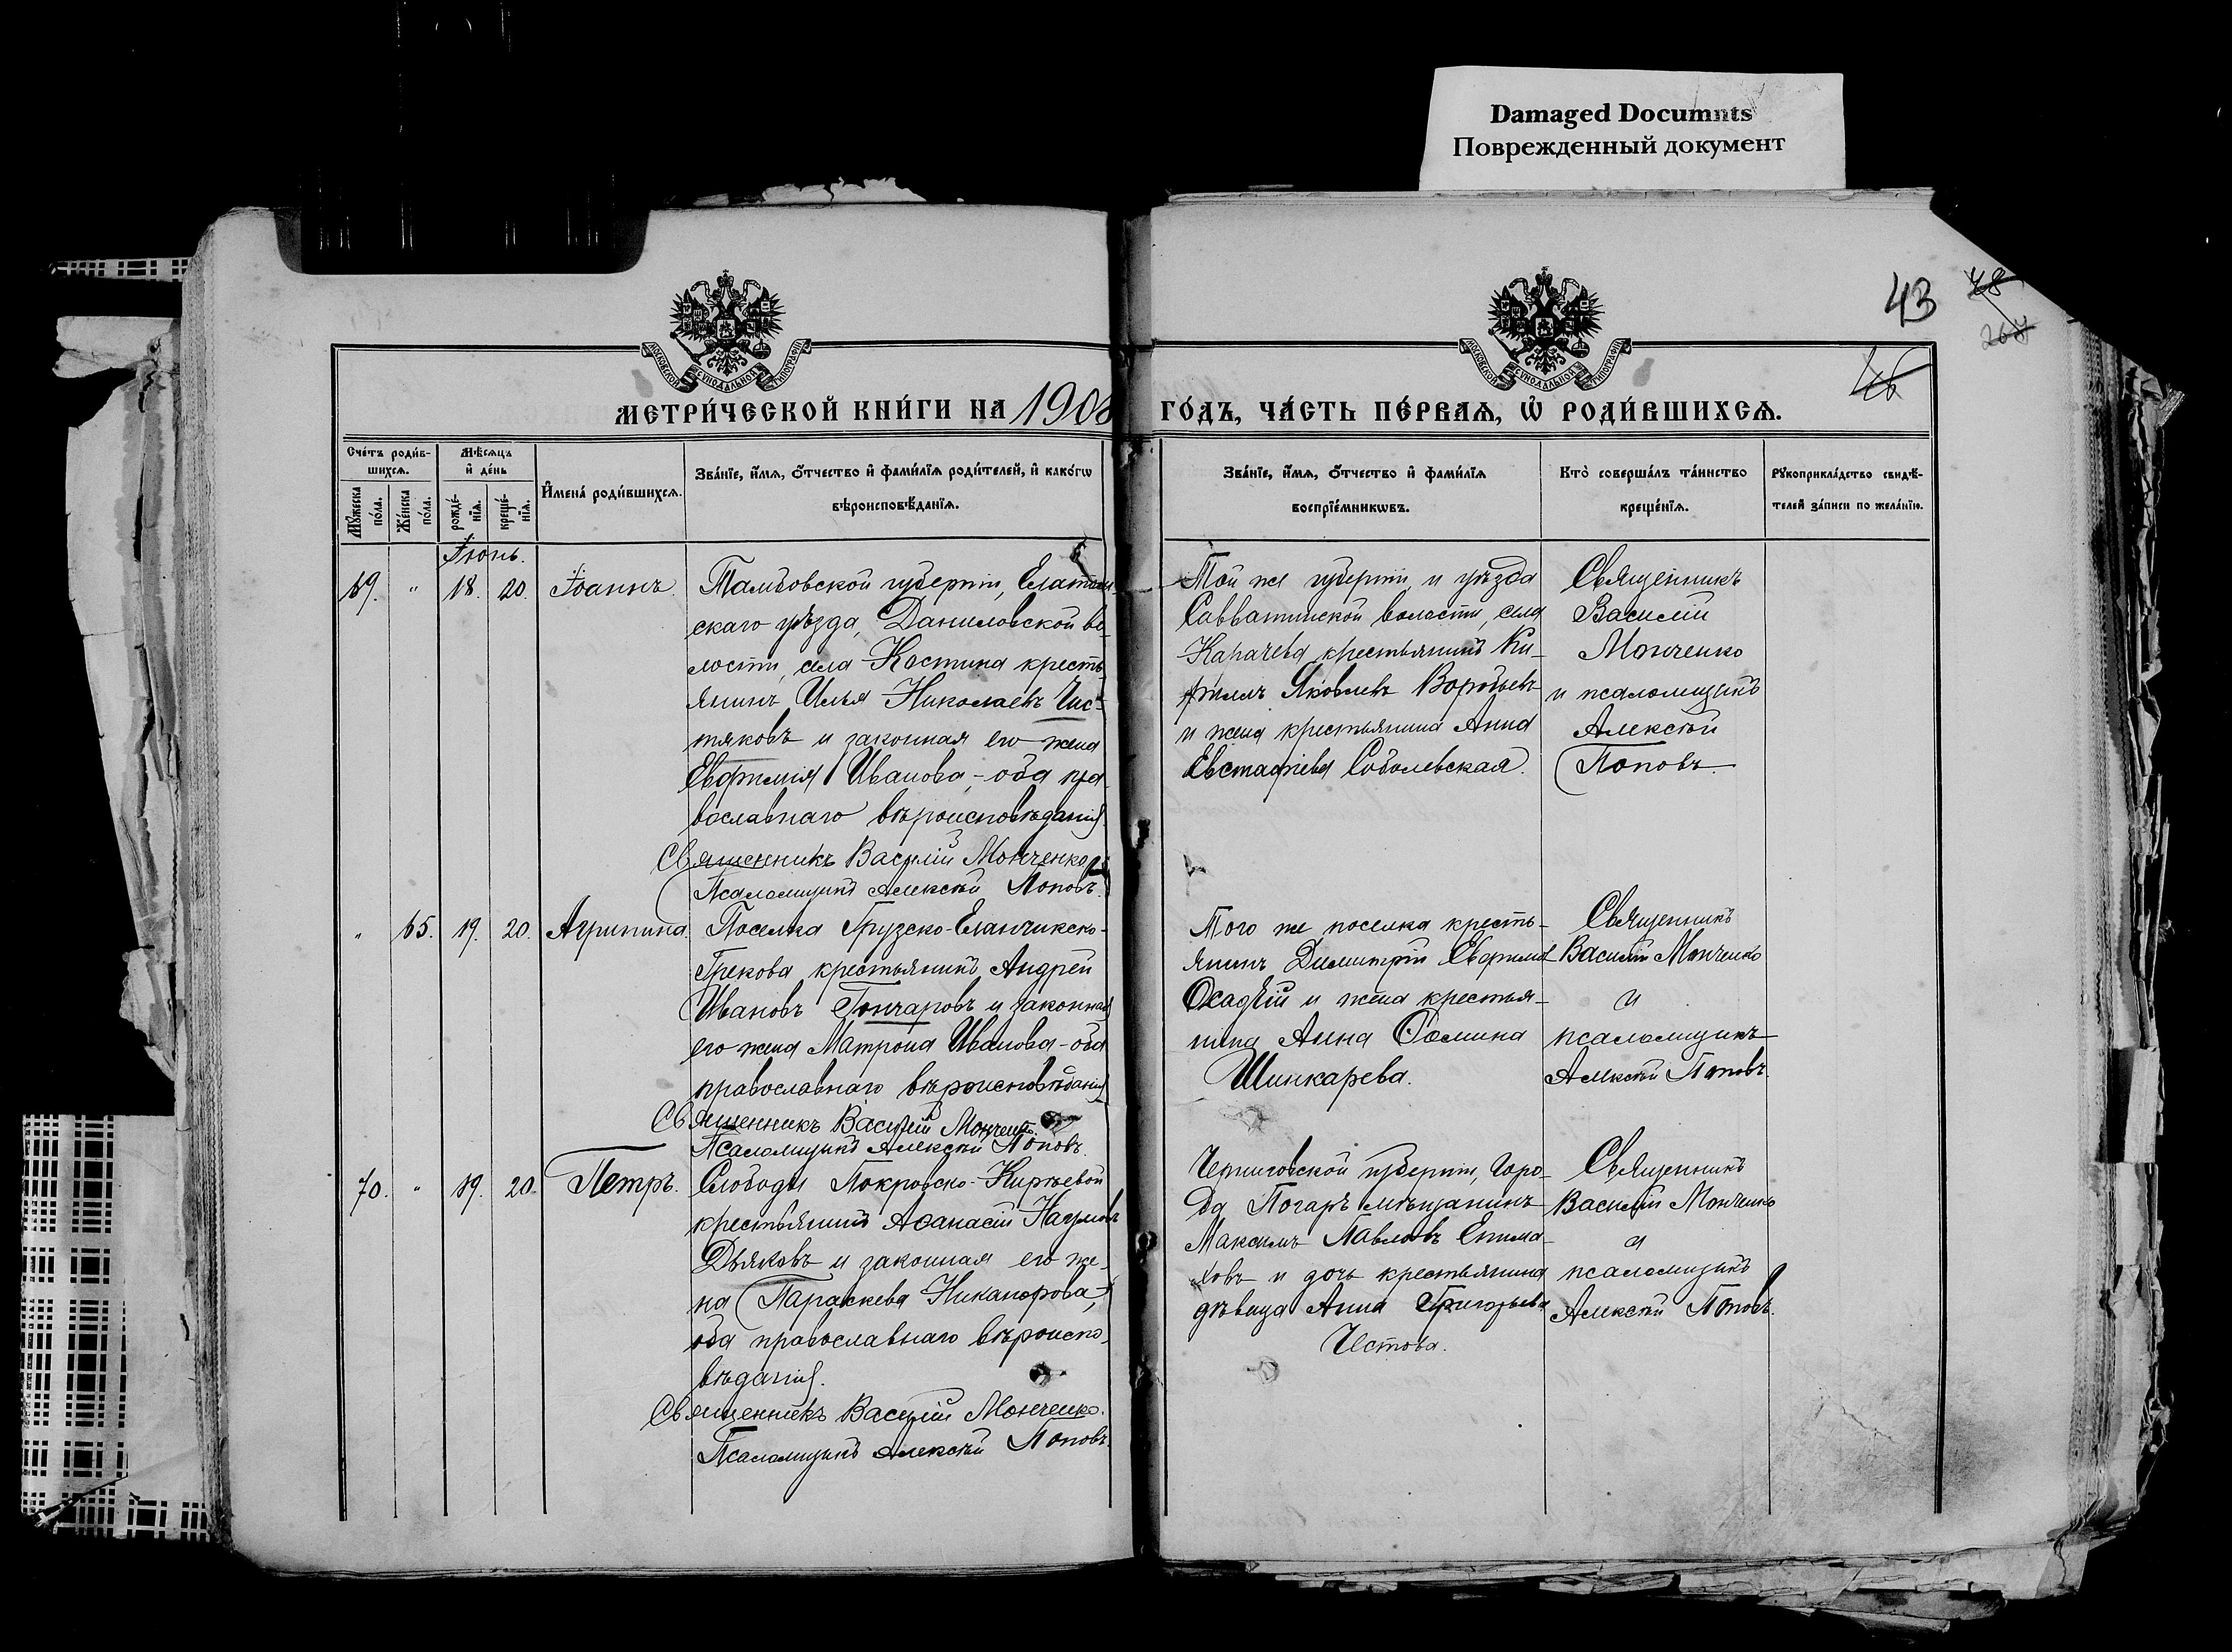 Damaged Documnts
Поврежденный документ
43
78
264
46
МОСКОВСКОЙ СѴНОДАЛЬНОЙ ТИПОГРАФІИ
МОСКОВСКОЙ СѴНОДАЛЬНОЙ ТИПОГРАФІИ
МЕТРИ́ЧЕСКОЙ КНИ́ГИ НА 1908 ГО́ДЪ, ЧА́СТЬ ПЕ́РВАѦ, Ѡ҆ РОДИ́ВШИХСѦ.
Сче́тъ роди́в-
шихсѧ.
Мѣ́сѧцъ
и҆ де́нь
Мꙋ́жеска
по́ла.
Же́нска
по́ла.
рожде́-
нїѧ.
креще́-
нїѧ.
И҆мена́ роди́вшихсѧ.
Зва́нїе, и҆́мѧ, ѻ҆́тчество и҆ фами́лїѧ роди́телей, и҆ како́гѡ
вѣроисповѣ́данїѧ.
Зва́нїе, и҆́мѧ, ѻ҆́тчество и҆ фами́лїѧ
воспрїе́мникѡвъ.
Кто̀ соверша́лъ та́инство
креще́нїѧ.
Рꙋкоприкла́дство свидѣ́-
телей за́писи по жела́нїю.
Іюнь.
69. " 18. 20. Іоаннъ. Тамбовской губерніи, Елатом
скаго уѣзда, Даниловской во
лости, села Костина кресть
янинъ Илья Николаевъ Чис-
тяковъ и законная его жена
Евфимія Иванова,- оба пра
вославнаго вѣроисповѣданія.
Священникъ Василій Монченко
Псаломщикъ Алексѣй Поповъ.
Той же губерніи и уѣзда
Савватинской волости, села
Карачева крестьянинъ Ки-
риллъ Яковлевъ Воробьевъ
и жена крестьянина Анна
Евстафіева Соболевская.
Священникъ
Василій
Монченко
и псаломщикъ
Алексѣй
Поповъ.
" 65. 19. 20. Агрипина. Поселка Грузско-Еланчикско-
Грекова крестьянинъ Андрей
Ивановъ Гончаровъ и законная
его жена Матрона Иванова-оба
православнаго вѣроисповѣданія
Священникъ Василій Монченко
Псаломщикъ Алексѣй Поповъ.
Того же поселка кресть-
янинъ Димитрій Евфимов
Осадчій и жена крестья-
нина Анна Ѳомина
Шинкарева.
Священникъ
Василій Монченко
и
псаломщикъ
Алексѣй Поповъ.
70. " 19. 20. Петръ. Слободы Покровско-Кирѣевой
крестьянинъ Аѳанасій Наумовъ
Дьяковъ и законная его же-
на Параскева Никанорова,-
оба православнаго вѣроиспо-
вѣданія.
Священникъ Василій Монченко.
Псаломщикъ Алексѣй Поповъ.
Черниговской губерніи, горо-
да Погаръ мѣщанинъ
Максимъ Павловъ Епима-
ховъ и дочь крестьянина
дѣвица Анна Григорьева
Честова.
Священникъ
Василій Монченко
и
псаломщикъ
Алексѣй Поповъ.